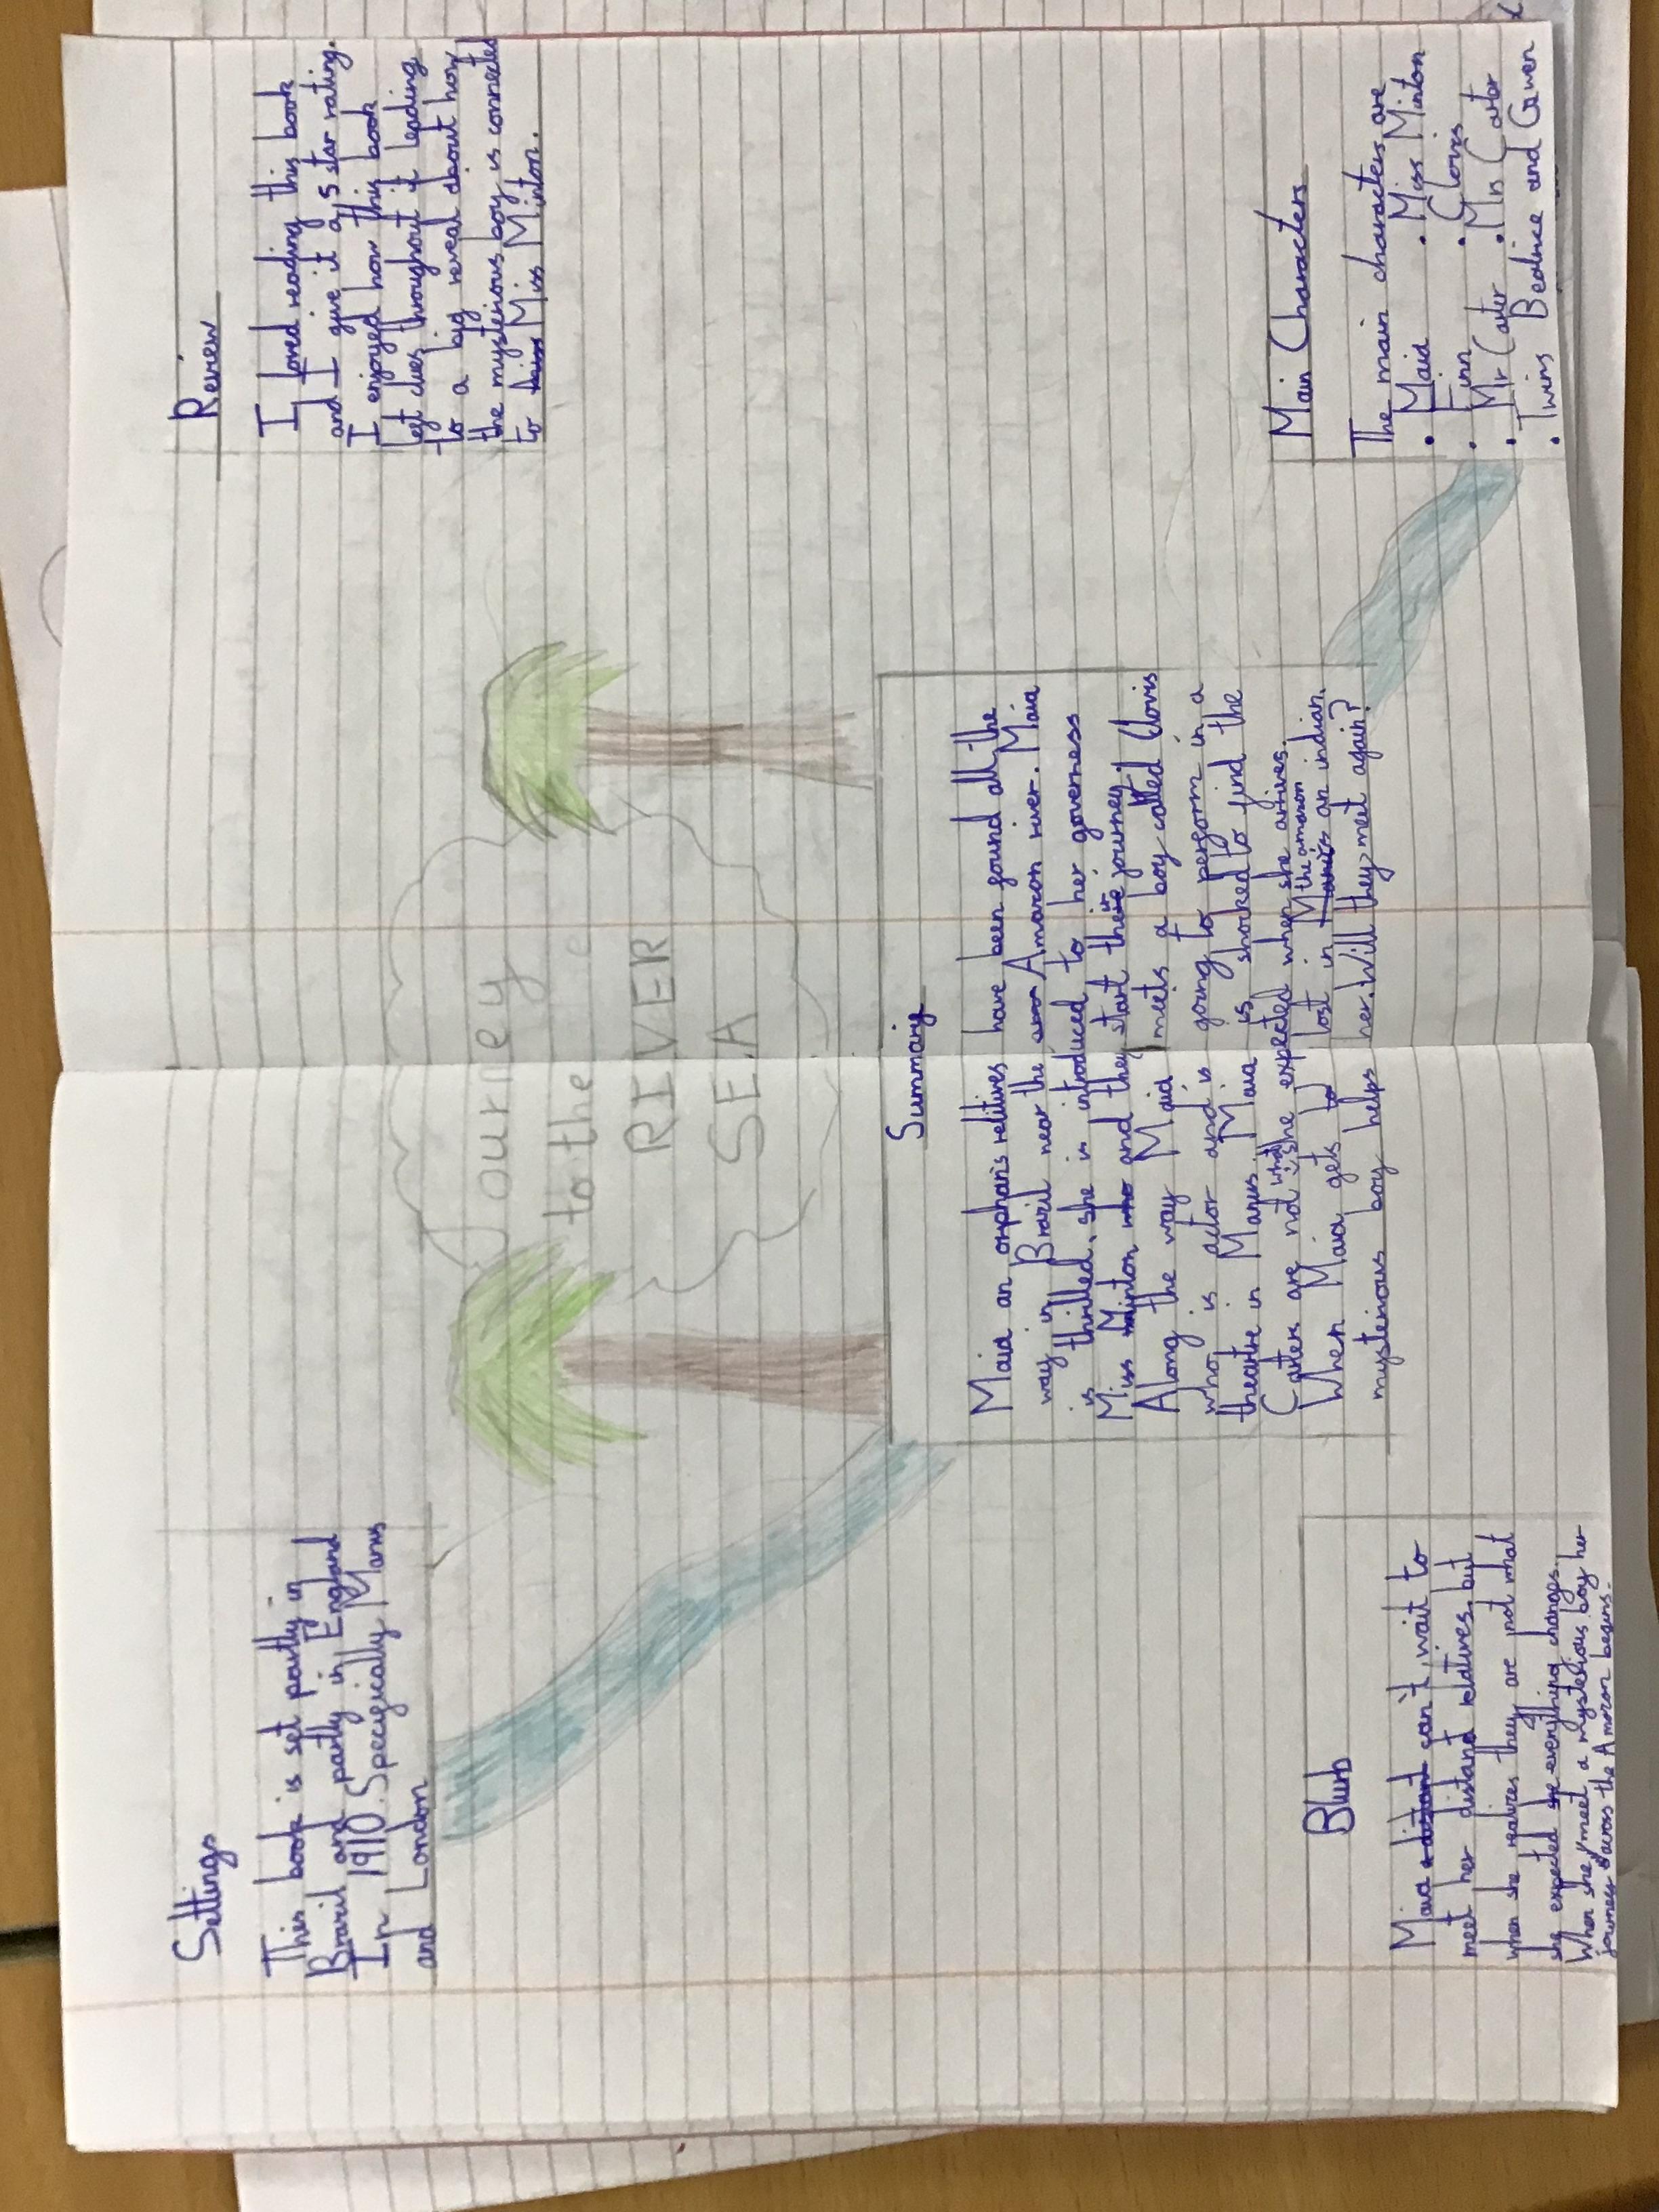 Settings
This book is set partly in
Brazil and partly in England
In 1910. Specifically Manus
and London
Journey
to the
RIVER
SEA
Review
I loved reading this book
and I give it a 5 star rating.
I enjoyed how this book
left clues throughout it leading
to a big reveal about how
the mysterious boy is connected
to Miss Minton.
Summary
Maia an orphan's relitives have been found all the
way in Brazil near the Amazon river. Maia
is thrilled, she is introduced to her governess
Miss Minton and they start their journey.
Along the way Maia meets a boy called Clovis
who is actor and is going to perform in a
theatre in Manus. Maia is shocked to find the
Carters are not what she expected when she arives.
When Maia gets lost in the amazon an indian,
mysterious boy helps her. Will they meet again?
Blurb
Maia can't wait to
meet her distand relatives, but
when she realizes they are not what
she expected everything changes.
When she meet a mysterious boy her
journey across the Amazon begins.
Main Characters
The main characters are
• Maia • Miss Minton
• Finn • Clovis
• Mr Carter • Mrs Carter
• Twins Beatrice and Gwen